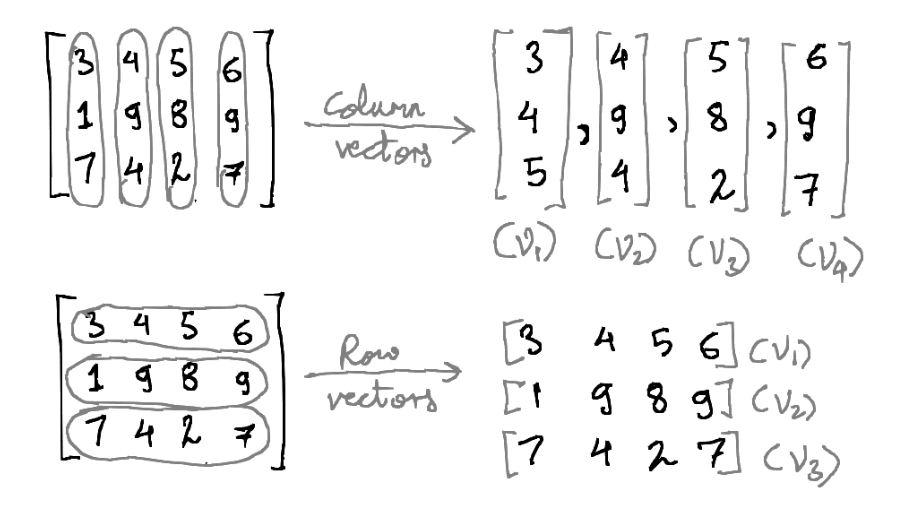 [3 4 5 6
1 9 8 9
7 4 2 7]
Column vectors
[3
4
5],
[4
9
4],
[5
8
2],
[6
9
7]
(V₁) (V₂) (V₃) (V₄)
[3 4 5 6
1 9 8 9
7 4 2 7]
Row vectors
[3 4 5 6] (V₁)
[1 9 8 9] (V₂)
[7 4 2 7] (V₃)